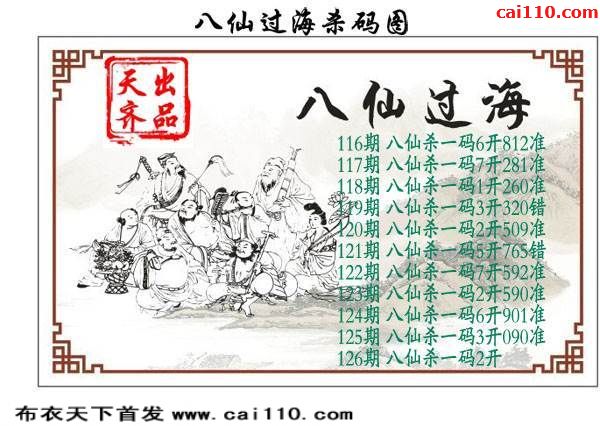 八仙过海杀码图
cai110.com
天齐
出品
八仙过海
116期 八仙杀一码6开812准
117期 八仙杀一码7开281准
118期 八仙杀一码1开260准
119期 八仙杀一码3开320错
120期 八仙杀一码2开509准
121期 八仙杀一码5开765错
122期 八仙杀一码7开592准
123期 八仙杀一码2开590准
124期 八仙杀一码6开901准
125期 八仙杀一码3开090准
126期 八仙杀一码2开
布衣天下首发 www.cai110.com